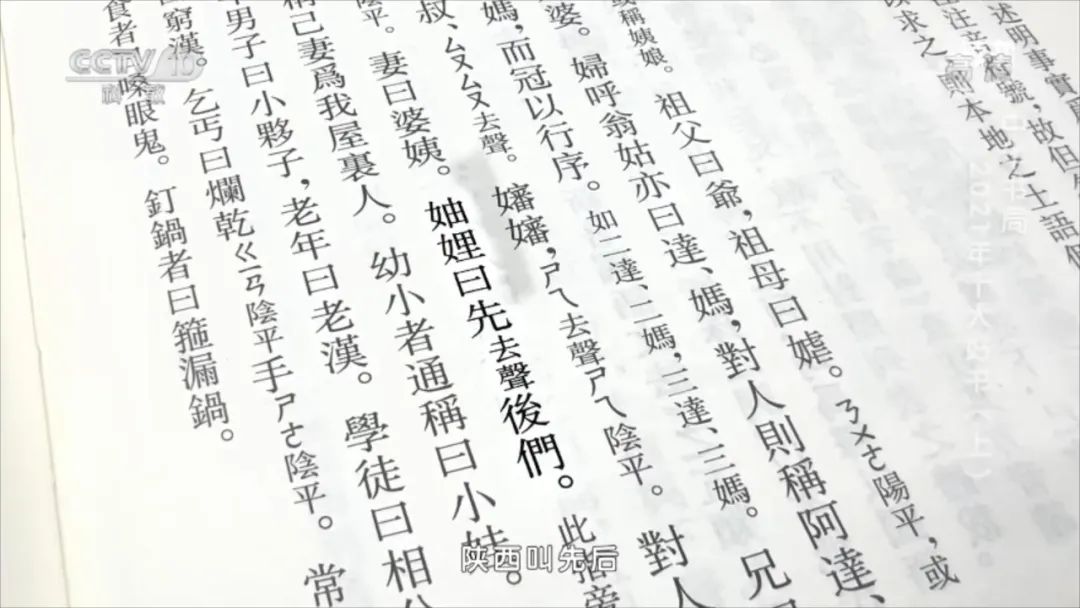 CCTV 10
科教
高清
书局
2021年十大好书(上)
述明事實
注音符號,故但
以求之,則本地之土語
或稱姨娘。祖父曰爺,祖母曰㜘。ㄋㄨㄜ陽平,或
婆。婦呼翁姑亦曰達、媽,對人則稱阿達、
媽,而冠以行序。如二達、二媽,三達、三媽。兄
叔、ㄙㄡㄙㄡ去聲。嬸嬸,ㄕㄟ去聲ㄕㄟ陰平。對人
平。妻曰婆姨。妯娌曰先去聲後們。此指旁
稱己妻爲我屋裏人。幼小者通稱曰小娃。
年男子曰小夥子,老年曰老漢。學徒曰相公
曰窮漢。乞丐曰爛乾ㄍㄧㄢ陰平手ㄕㄜ陰平。常
食者曰嗓眼鬼。釘鍋者曰箍漏鍋。
陕西叫先后